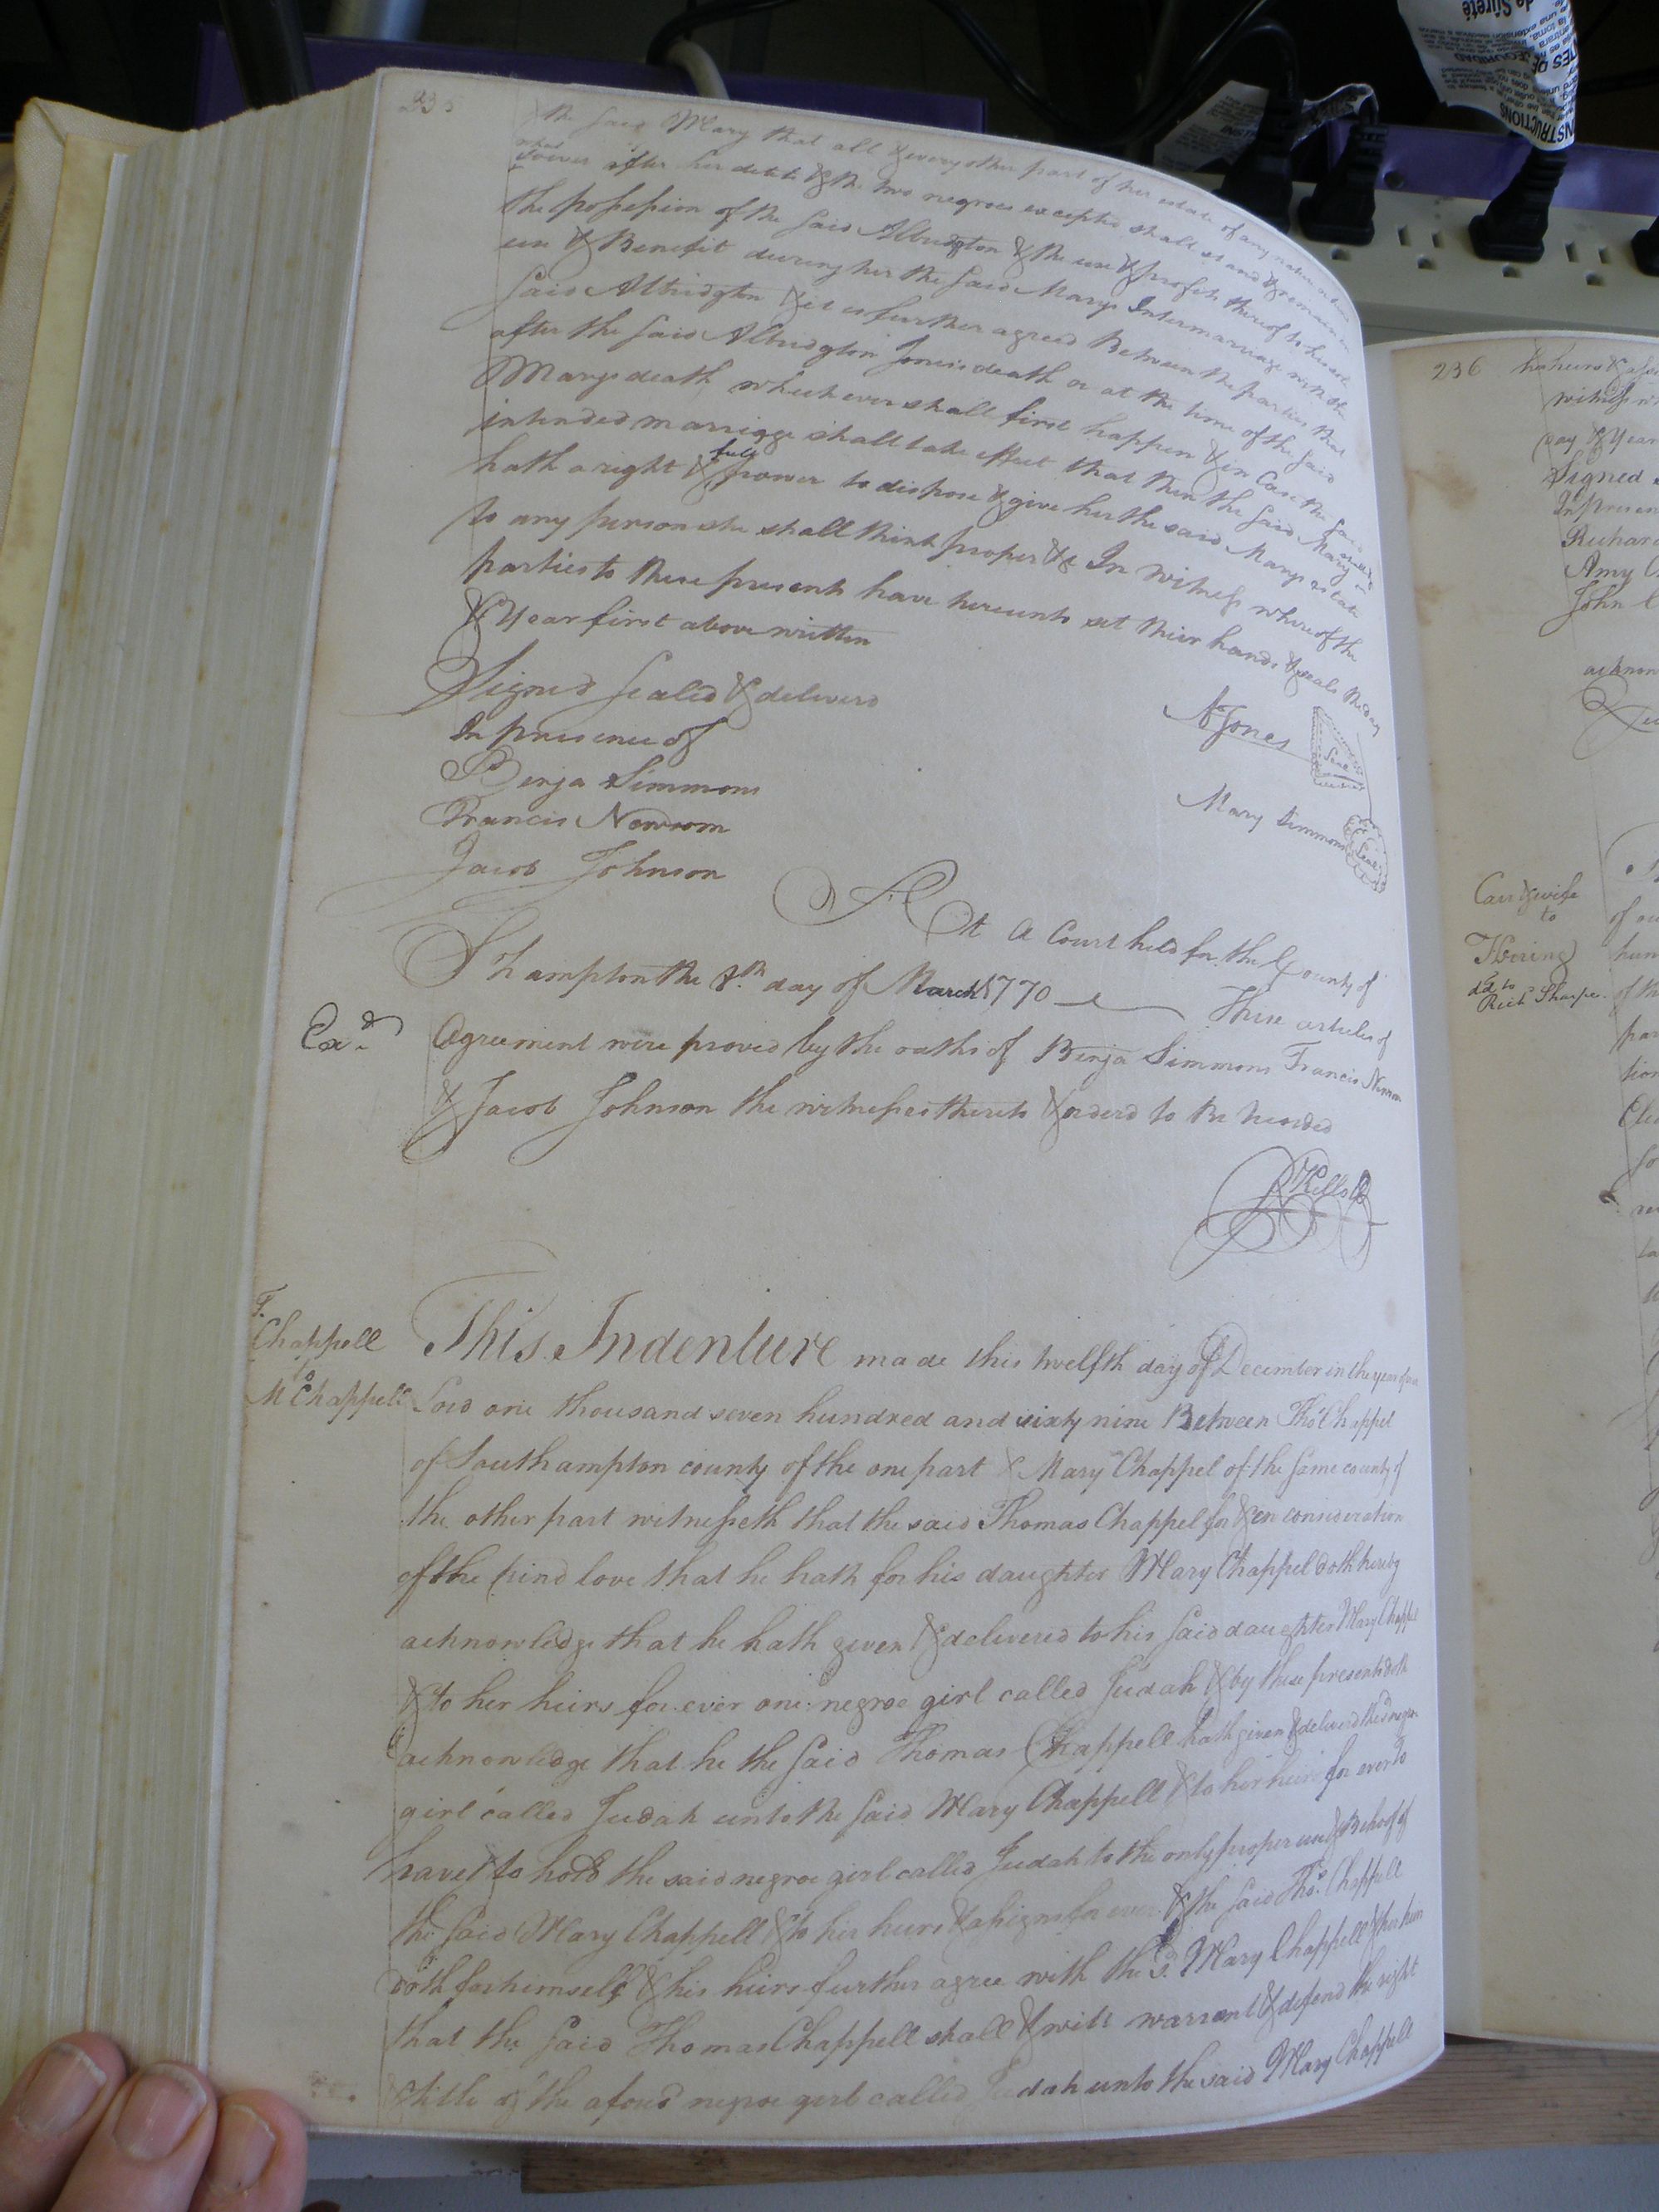 235
the said Mary that all & every other part of her estate of any nature or kind
what
soever after her debts & the two negroes excepted shall stand & remain in
the possession of the said Albridgton & the use & profits thereof to his sole
use & Benefit during her the said Marys Intermarriage with the
said Albridgton & it is further agreed Between the parties that
after the said Albridgton Jones's death or at the time of the said
Marys death which ever shall first happen & in Case the said
intended marriage shall take effect that then the said Mary
hath a right & full power to dispose & give her the said Marys estate
to any person she shall think proper &c In Witness whereof the
parties to these presents have hereunto set their hands & seals the day
& Year first above written
Signed sealed & deliverd
In presence of
Benja Simmons
Francis Newsom
Jacob Johnson
A Jones
Seal
Mary Simmons
Seal
At a Court held for the County of
S hampton the 8th day of March 1770
These articles of
Exd
Agreement were proved by the oaths of Benja Simmons Francis Newsom
& Jacob Johnson the witnesses thereto & orderd to be recorded
R Kello
T.
Chappell
to
M Chappell
This Indenture made this twelfth day of December in the year of our
Lord one thousand seven hundred and sixty nine Between Thos Chappel
of Southampton county of the one part & Mary Chappel of the same county of
the other part witnesseth that the said Thomas Chappel for & in consideration
of the kind love that he hath for his daughter Mary Chappel doth hereby
acknowledge that he hath given & delivered to his said daughter Mary Chappel
& to her heirs for ever one negroe girl called Judah & by these presents doth
acknowledge that he the said Thomas Chappell hath given & deliverd the negroe
girl called Judah unto the said Mary Chappell & to her heirs for ever To
have & to hold the said negroe girl called Judah to the only proper use & Behoof of
the said Mary Chappell & to her heirs & assigns for ever & the said Thos. Chappell
doth for himself & his heirs further agree with the sd. Mary Chappell & her heirs
that the said Thomas Chappell shall & will warrant & defend the right
& title of the aforesd negroe girl called Judah unto the said Mary Chappell
236
his heirs &
witness
day & Year
Signed
In presen
Richard
Amy
John
acknow
Carr & wife
to
Herring
dd to
Richd Sharpe.
of
hun
of the
par
tion
INSTRUCTIONS
de Sûreté